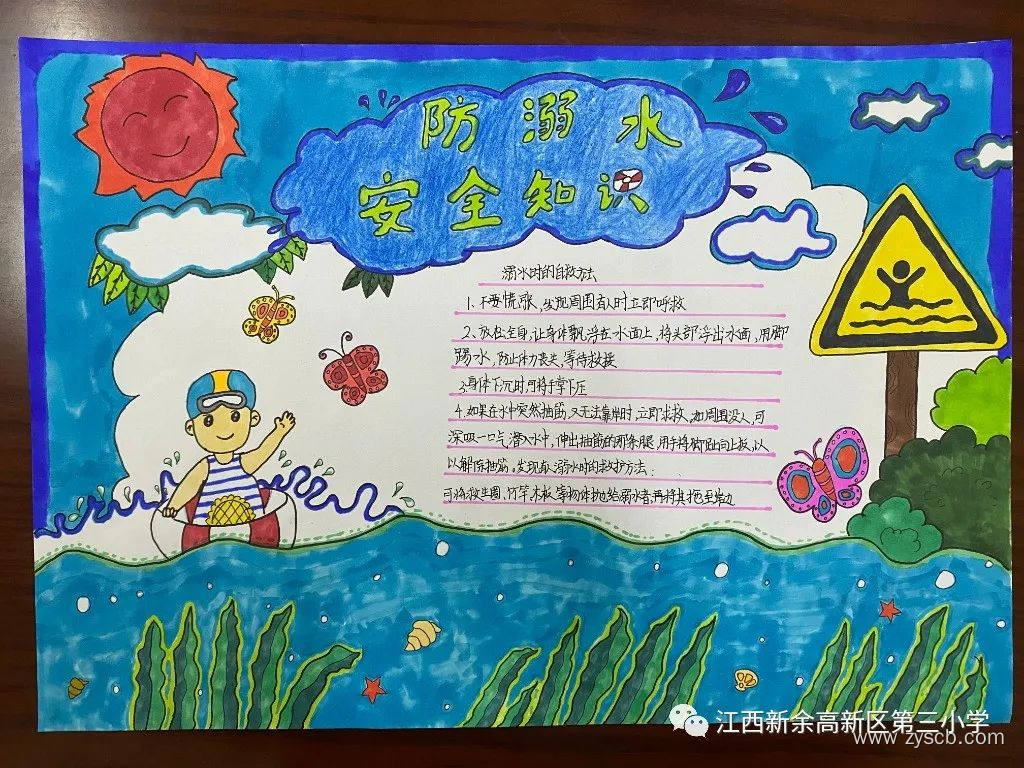 防溺水
安全知识
溺水时的自救方法
1、不要慌张,发现周围有人时立即呼救
2、放松全身,让身体飘浮在水面上,将头部浮出水面,用脚
踢水,防止体力丧失,等待救援
3.身体下沉时可将手掌下压
4.如果在水中突然抽筋,又无法靠岸时,立即求救,如周围没人,可
深吸一口气潜入水中,伸出抽筋的那条腿,用手将脚趾向上扳,以
以解除抽筋。发现有溺水时的救护方法:
可将救生圈,竹竿,木板等物体抛给溺水者,再将其拖至岸边
江西新余高新区第三小学
www.zyscb.com